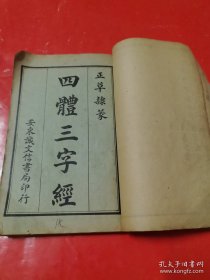 正草隸篆
四體三字經
安東誠文信書局印行
孔夫子旧书网